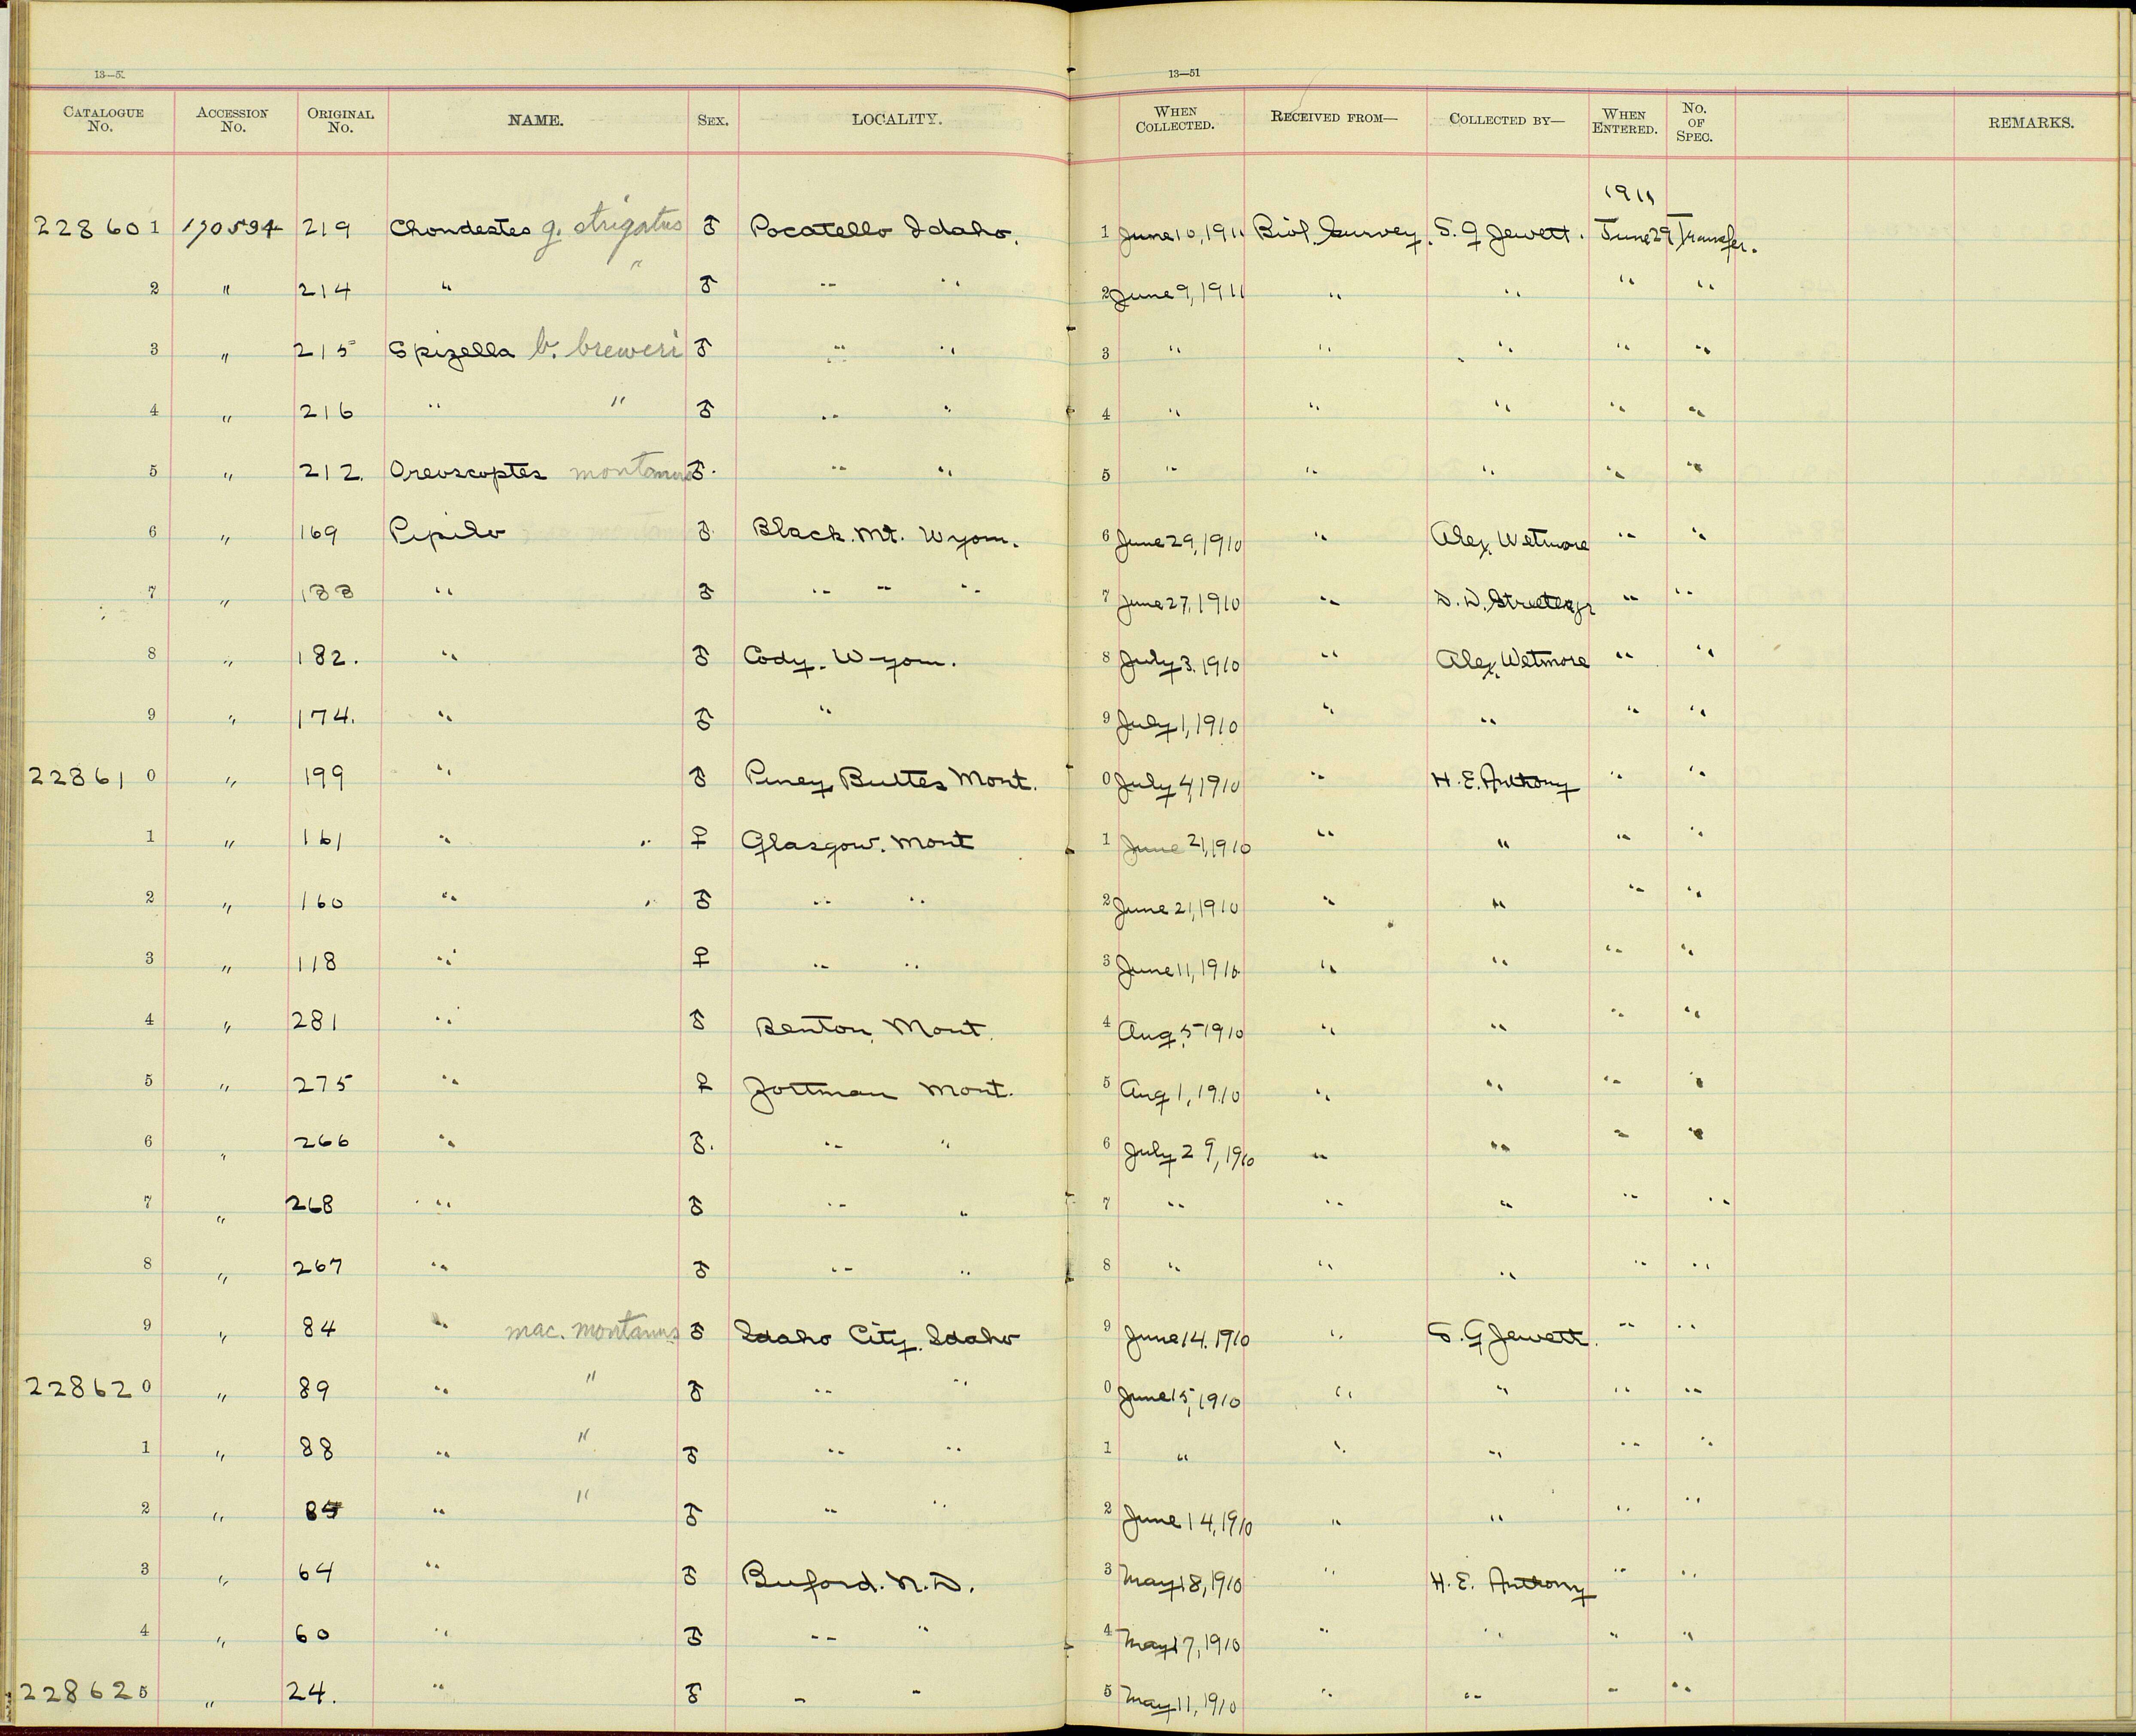 13—51
CATALOGUE No. ACCESSION No. ORIGINAL No. NAME. SEX. LOCALITY. WHEN COLLECTED. RECEIVED FROM— COLLECTED BY— WHEN ENTERED. No. OF SPEC. REMARKS.
1911
228601 190594 219 Chondestes g. strigatus ♂ Pocatello Idaho. 1 June 10, 1911 Biol. Survey. S. G. Jewett. June 29 Transfer.
2 " 214 " " ♂ " " 2 June 9, 1911 " " " "
3 " 215 Spizella b. breweri ♂ " " 3 " " " " "
4 " 216 " " ♂ " " 4 " " " " "
5 " 212. Oreoscoptes montanus ♂. " " 5 " " " " "
6 " 169 Pipilo ♂ Black Mt. Wyom. 6 June 29, 1910 " Alex. Wetmore " "
7 " 188 " ♂ " " " 7 June 27, 1910 " D. D. Streeter jr " "
8 " 182. " ♂ Cody. Wyom. 8 July 3, 1910 " Alex. Wetmore " "
9 " 174. " ♂ " 9 July 1, 1910 " " " "
228610 " 199 " ♂ Piney Buttes Mont. 0 July 4, 1910 " H. E. Anthony " "
1 " 161 " " ♀ Glasgow. Mont 1 June 21, 1910 " " " "
2 " 160 " " ♂ " " 2 June 21, 1910 " " " "
3 " 118 " ♀ " " 3 June 11, 1910 " " " "
4 " 281 " ♂ Benton, Mont. 4 Aug. 5 1910 " " " "
5 " 275 " ♀ Zortman Mont. 5 Aug 1, 1910 " " " "
6 " 266 " ♂. " " 6 July 29, 1910 " " " "
7 " 268 " ♂ " " 7 " " " " "
8 " 267 " ♂ " " 8 " " " " "
9 " 84 " mac. montanus ♂ Idaho City. Idaho 9 June 14. 1910 " S. G Jewett. " "
228620 " 89 " " ♂ " " 0 June 15, 1910 " " " "
1 " 88 " " ♂ " " 1 " " " " "
2 " 85 " " ♂ " " 2 June 14, 1910 " " " "
3 " 64 " ♂ Buford. N. D. 3 May 18, 1910 " H. E. Anthony " "
4 " 60 " ♂ " " 4 May 17, 1910 " " " "
228625 " 24. " ♂ " " 5 May 11, 1910 " " " "